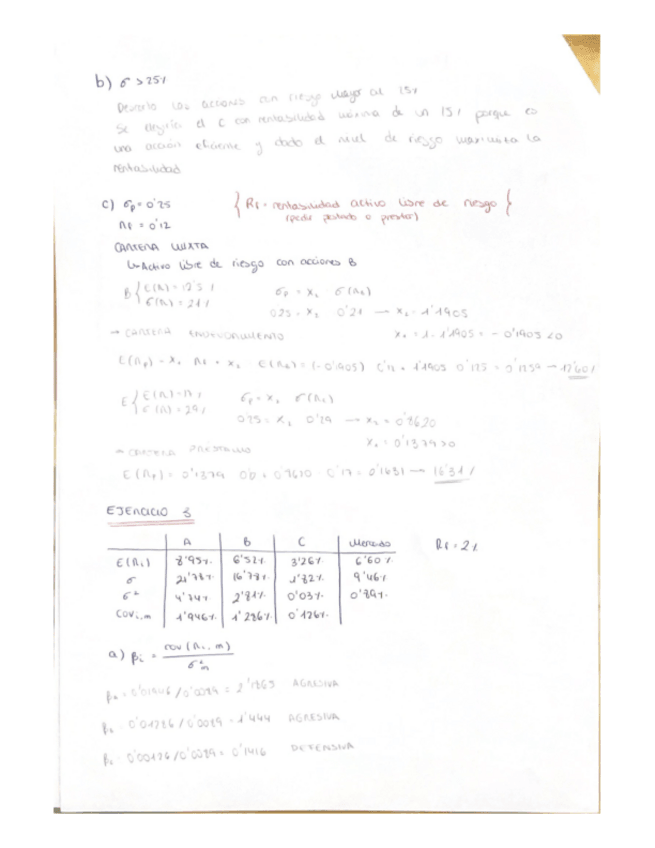 b) σ > 25%
Descarto las acciones con riesgo mayor al 25%
Se elegiría el C con rentabilidad máxima de un 15% porque es
una acción eficiente y dado el nivel de riesgo maximiza la
rentabilidad
c) σp = 0'25 { Rf = rentabilidad activo libre de riesgo }
Rf = 0'12 (pedir prestado o prestar)
CARTERA MIXTA
↳ Activo libre de riesgo con acciones B
B { E(R) = 12'5% σp = x₂ σ(R₂)
σ(R) = 21% 0'25 = x₂ 0'21 → x₂ = 1'1905
→ CARTERA ENDEUDAMIENTO x₁ = 1 - 1'1905 = - 0'1905 < 0
E(Rp) = x₁ Rf + x₂ E(R₂) = (-0'1905) 0'12 + 1'1905 0'125 = 0'1259 → 12'60%
E { E(R) = 17% σp = x₂ σ(R₂)
σ(R) = 29% 0'25 = x₂ 0'29 → x₂ = 0'8620
x₁ = 0'1379 > 0
→ CARTERA PRÉSTAMO
E(Rp) = 0'1379 0'12 + 0'8620 0'17 = 0'1631 → 16'31%
EJERCICIO 3
A B C Mercado Rf = 2%
E(Ri) 8'95% 6'52% 3'26% 6'60%
σ 21'78% 16'78% 1'82% 9'46%
σ² 4'74% 2'81% 0'03% 0'89%
Covi,m 1'946% 1'286% 0'126%
a) βi = cov(Ri, m) / σ²m
βA = 0'01946 / 0'0089 = 2'1865 AGRESIVA
βB = 0'01286 / 0'0089 = 1'444 AGRESIVA
βC = 0'00126 / 0'0089 = 0'1416 DEFENSIVA